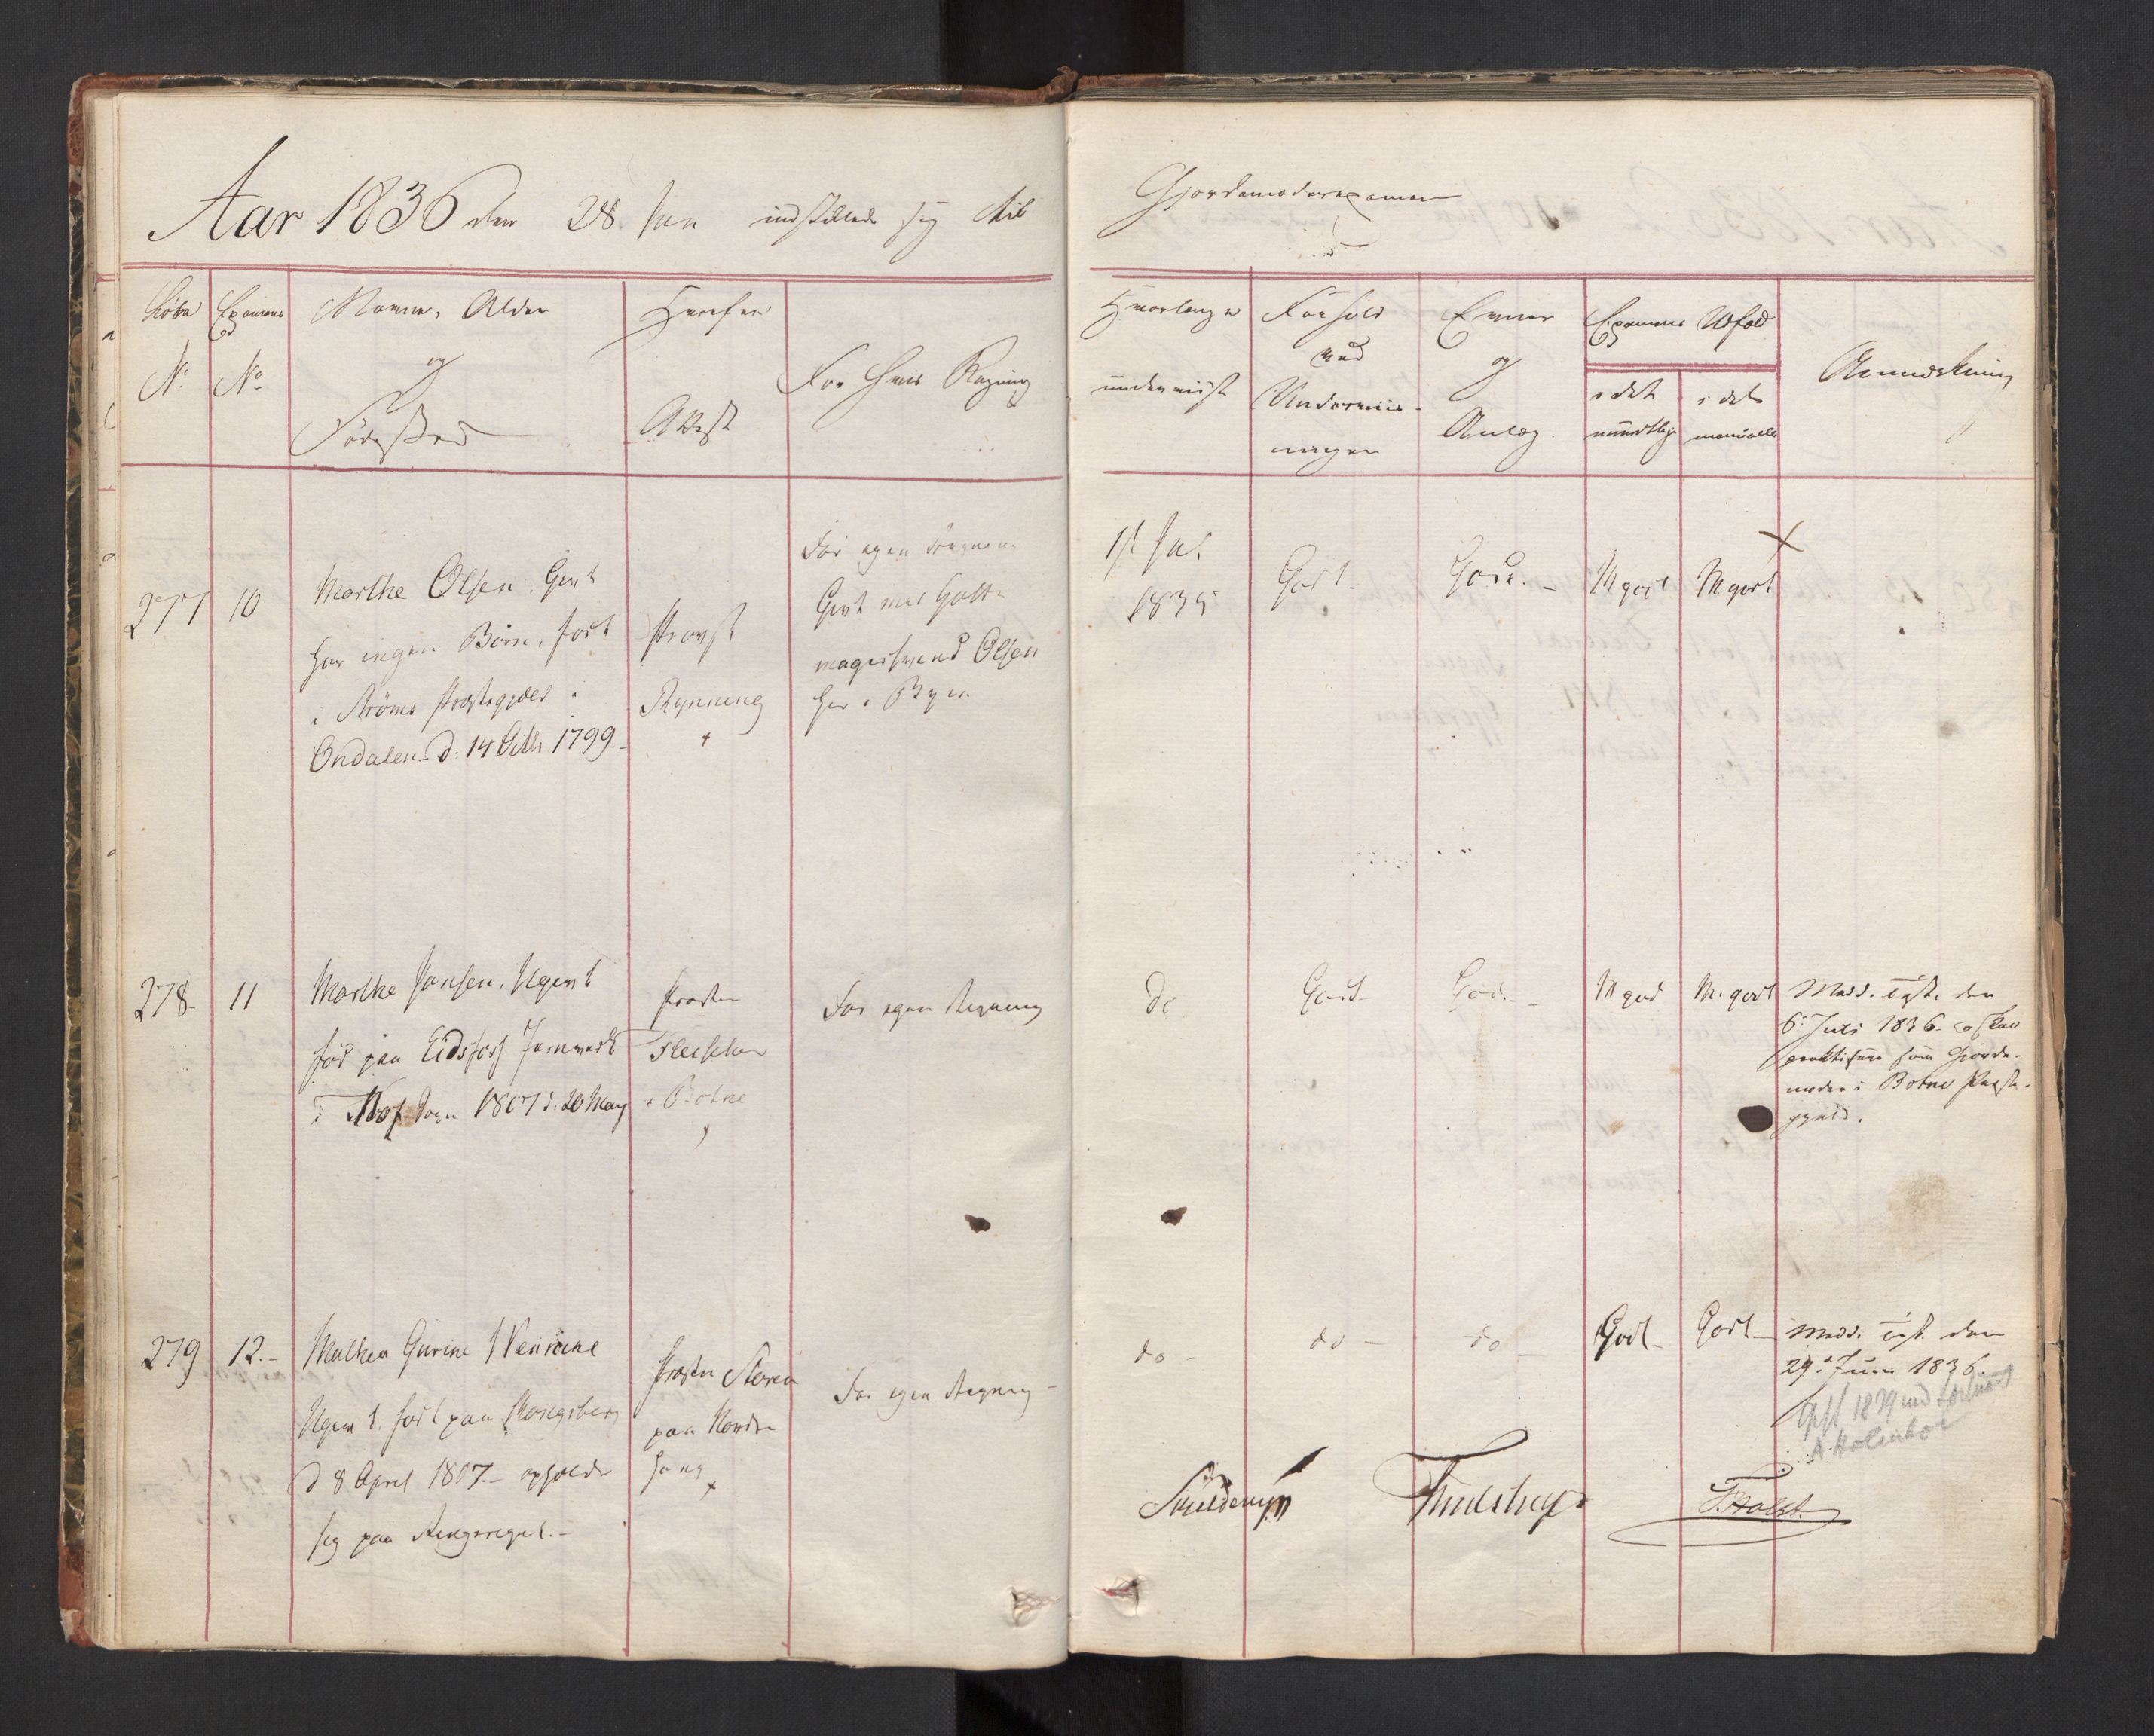 Aar 1836 den 28 Jun indstillede sig til
Gjordemoderexamen
Løbe
No
Examens
No
Navne, Alder
og
Fødested
Hvorfra
Attest
For hvis Regning
Hvorlænge
underviist
Forhold
ved
Underviis-
ningen
Evner
og
Anlæg.
Examens Udfald
i det
mundtlige
i det
manuelle
Anmærkning
277
10
Marthe Olsen. Givt
har ingen Børn. født
i Strøms Præstegjeld i
Ondalen d: 14 1799.
Provst
Rynning
For egen Regning
Givt med
Olsen
her i Byen
1st Jul
1835
Godt
Gode.
Mgodt
Mgodt
278.
11
Marthe Jansen. Ugivt
fød paa Eidsfos Jernverk
i Hof Sogn 1807 d. 20 May
Præsten
Fleischer
i Botne
For egen Regning
do
Godt
Gode.
Mgod
M. godt
Medd. den
6t Juli 1836. at skal
praktisere som Gjorde-
moder i Botne Præste-
gjeld.
279
12.
Mathea Gurine
Ugivt. født paa Kongsberg
d 8 April 1807. opholder
sig paa
Præsten
paa Nordre
For egen Regning
do
do
do
Godt
Godt
Medd. den
29de Juni 1836.
1879
Skjelderup
Thulstrup
F. Holst.